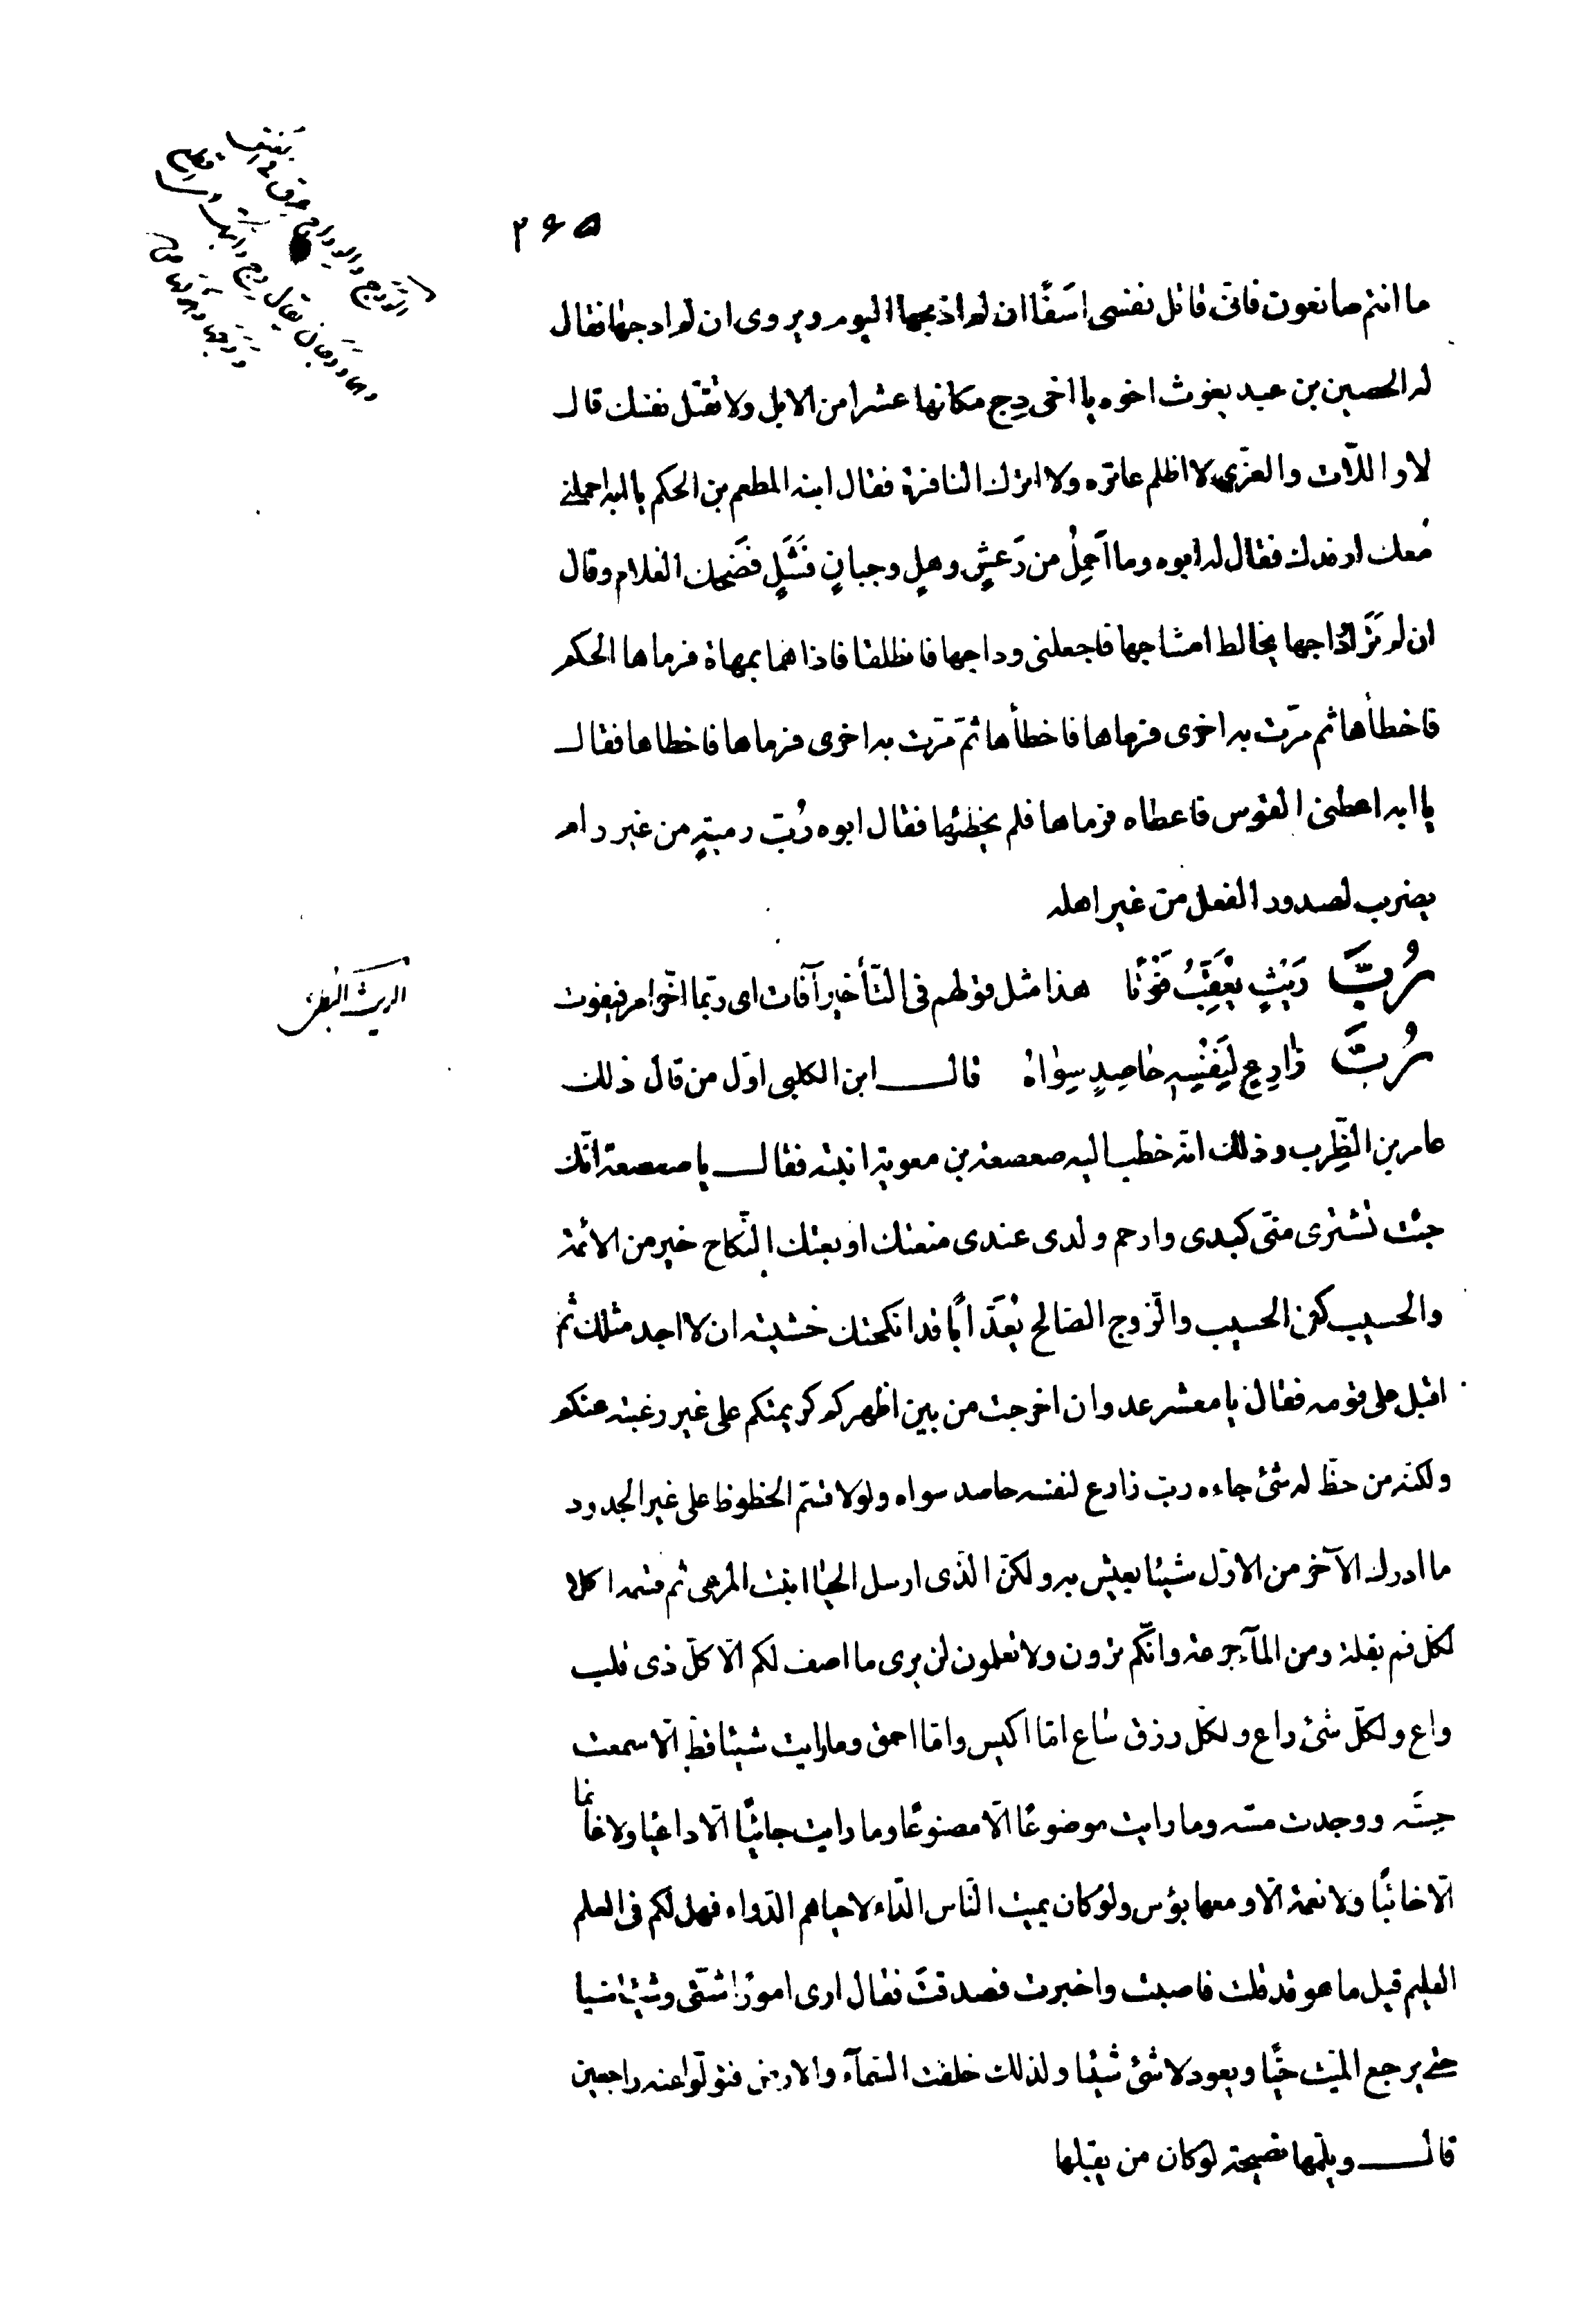 ۲۶۵
ما انتم صانعون فانى قاتل نفسى اسَفًا ان لم اذبحها اليوم ويروى ان لم ادجها فقال
له الحصين بن عبد يغوث اخوه يا اخى دِج مكانها عشرا من الابل ولا تقتل نفسك قال
لا واللّات والعزّى لا اظلم عاترة ولا اترك النافرة فقال ابنه المطعم بن الحكم يا ابه احملنى
معك ارفدك فقال له ابوه وما اَحمِلُ من رَعشٍ وهلٍ وجبانٍ فَشَلٍ فضَحك الغلام وقال
ان لم تَرَ اوداجها يخالط امشاجها فاجعلنى وداجها فانطلقا فاذا هما بمهاة فرماها الحكم
فاخطأها ثم مرّت به اخرى فرماها فاخطأها ثمّ مرّت به اخرى فرماها فاخطاها فقال
يا ابه اعطنى القوس فاعطاه فرماها فلم يخطئها فقال ابوه رُبّ رميةٍ من غير رام
يضرب لصدور الفعل من غير اهله
رُبَّ رَيْثٍ يُعْقِبُ فَوْتًا هذا مثل قولهم فى التّأخير آفات اى ربّما اخّر امر فيفوت
الريث البطئ
رُبَّ زارِعٍ لِنَفْسِهِ حاصِدٍ سِواهُ قال ابن الكلبى اوّل من قال ذلك
عامر بن الظّرِب وذلك انّه خطب اليه صعصعة بن معوية ابنته فقال يا صعصعة انّك
جئت تشترى منّى كبدى وارحم ولدى عندى منعتك او بعتك النّكاح خير من الائمة
والحسيب كفئ الحسيب والزّوج الصّالح يُعَدّ ابًا قد انكحتك خشية ان لا اجد مثلك ثم
اقبل على قومه فقال يا معشر عدوان اخرجت من بين اظهركم كريمتكم على غير رغبة عنكم
ولكنّه من حظّ له شئ جاءه ربّ زارع لنفسه حاصد سواه ولولا قسم الحظوظ على غير الجدود
ما ادرك الآخر من الاوّل شيئا يعيش به ولكنّ الّذى ارسل الحيا انبت المرعى ثم قسمه اكلا
لكلّ فم بقلة ومن المآء جرعة وانّكم ترون ولا تعلمون لن يرى ما اصف لكم الّا كلّ ذى قلب
واع ولكلّ شئ راع ولكلّ رزق ساع امّا اكيس وامّا احمق وما رايت شيئا قط الّا سمعت
حسّه ووجدت مسّه وما رايت موضوعًا الّا مصنوعًا وما رايت جائيًا الّا داعيا ولا غانما
الّا خائبًا ولا نعمة الّا ومعها بؤس ولو كان يميت النّاس الدّاء لاحياهم الدّواء فهل لكم فى العلم
العليم قيل ما هو قد قلت فاصبت واخبرت فصدقت فقال ارى امورًا شتّى وشيئا شيا
حتى يرجع الميّت حيًّا ويعود لا شئ شيئا ولذلك خلقت السّمآء والارض فتولّوا عنه راجعين
قال ويلمّها نصيحة لو كان من يقبلها